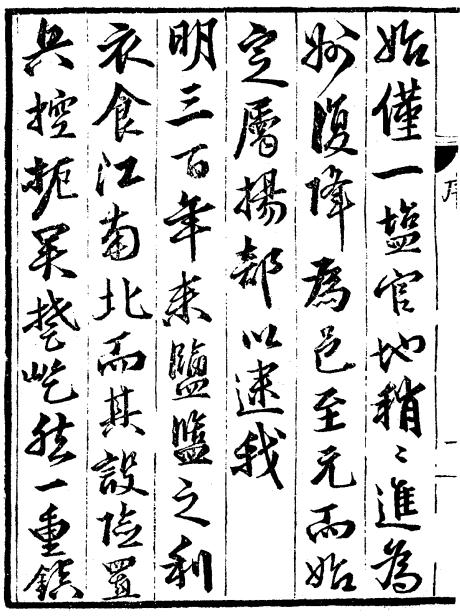 始僅一塩官地稍〻進為
州復降為邑至元而始
定屬揚郡以逮我
明三百年来鹽之利
衣食江南北而其設險置
兵控扼吴楚屹然一重鎮
序
一